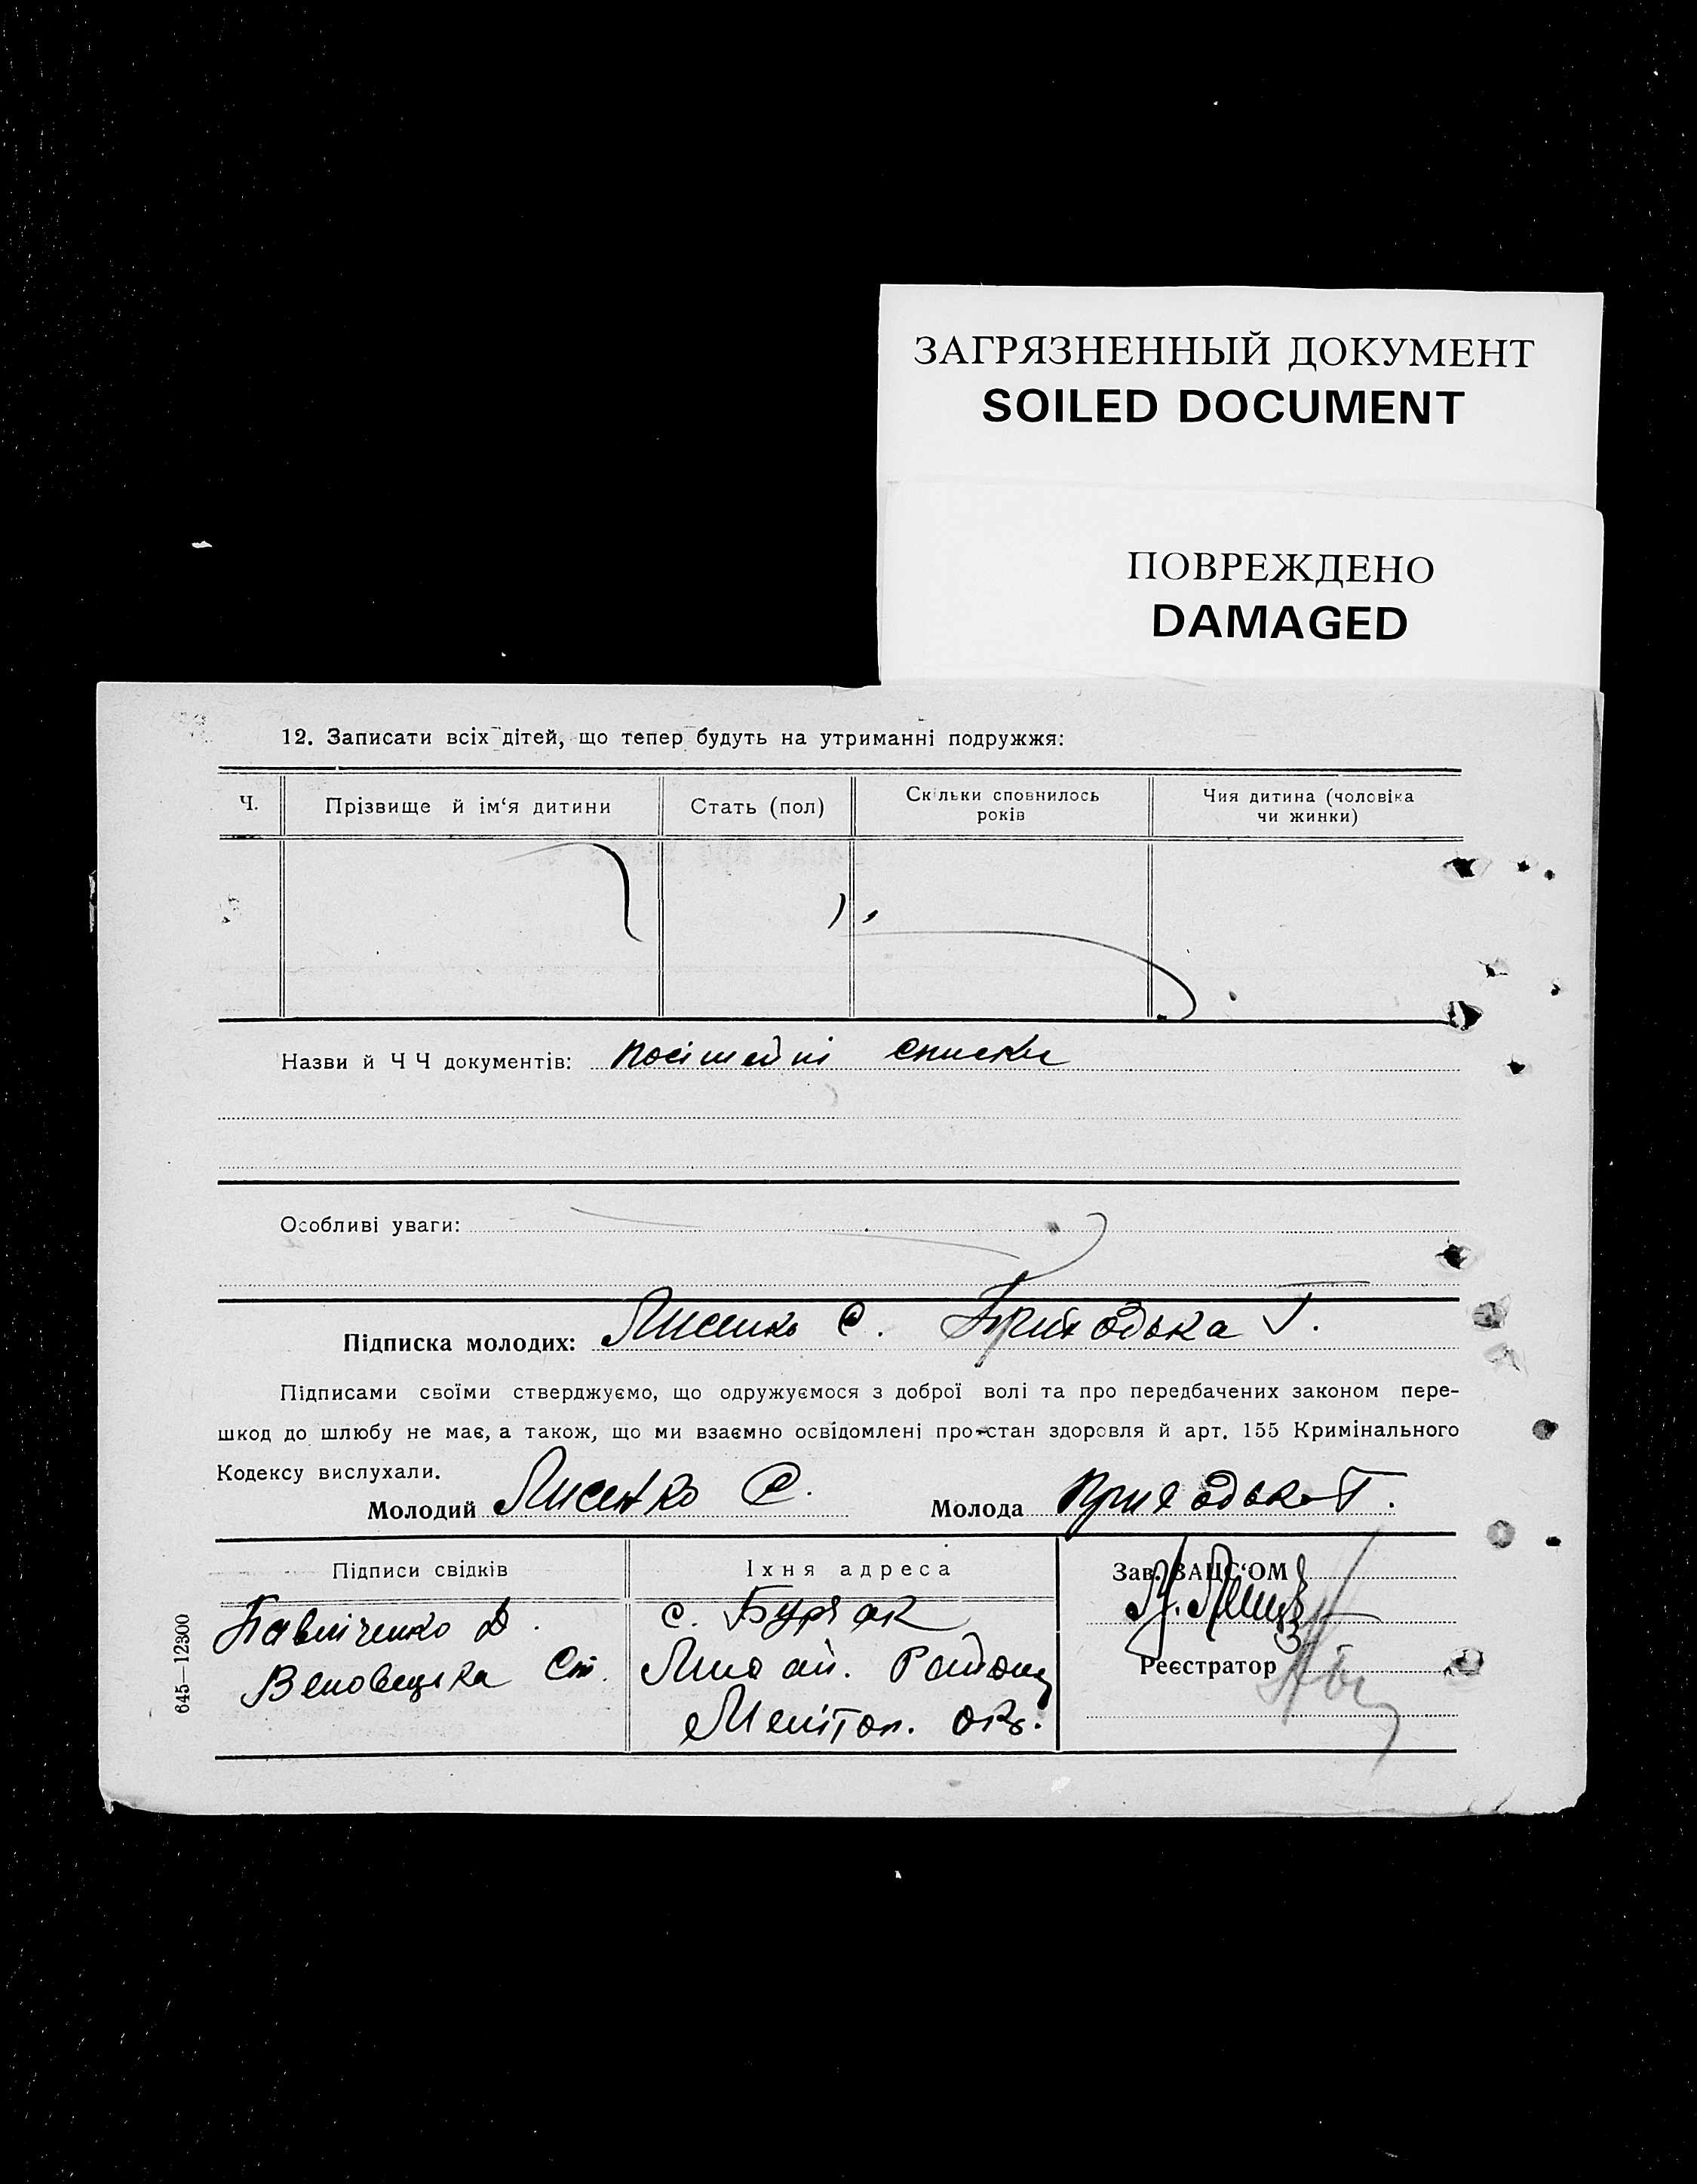 ЗАГРЯЗНЕННЫЙ ДОКУМЕНТ
SOILED DOCUMENT
ПОВРЕЖДЕНО
DAMAGED
12. Записати всіх дітей, що тепер будуть на утриманні подружжя:
Ч. Прізвище й ім‘я дитини Стать (пол) Скільки сповнилось років Чия дитина (чоловіка чи жинки)
Назви й Ч Ч документів: списки
Особливі уваги:
Підписка молодих: Лисенко С. Приходька Г.
Підписами своїми стверджуємо, що одружуємося з доброї волі та про передбачених законом пере-
шкод до шлюбу не має, а також, що ми взаємно освідомлені про стан здоровля й арт. 155 Кримінального
Кодексу вислухали.
Молодий Лисенко С. Молода Приходька Г.
Підписи свідків Їхня адреса Зав. ЗАЦС‘ОМ
Павліченко Д. с.
Ст. Району Реєстратор
Мелітоп. окр.
645—12300